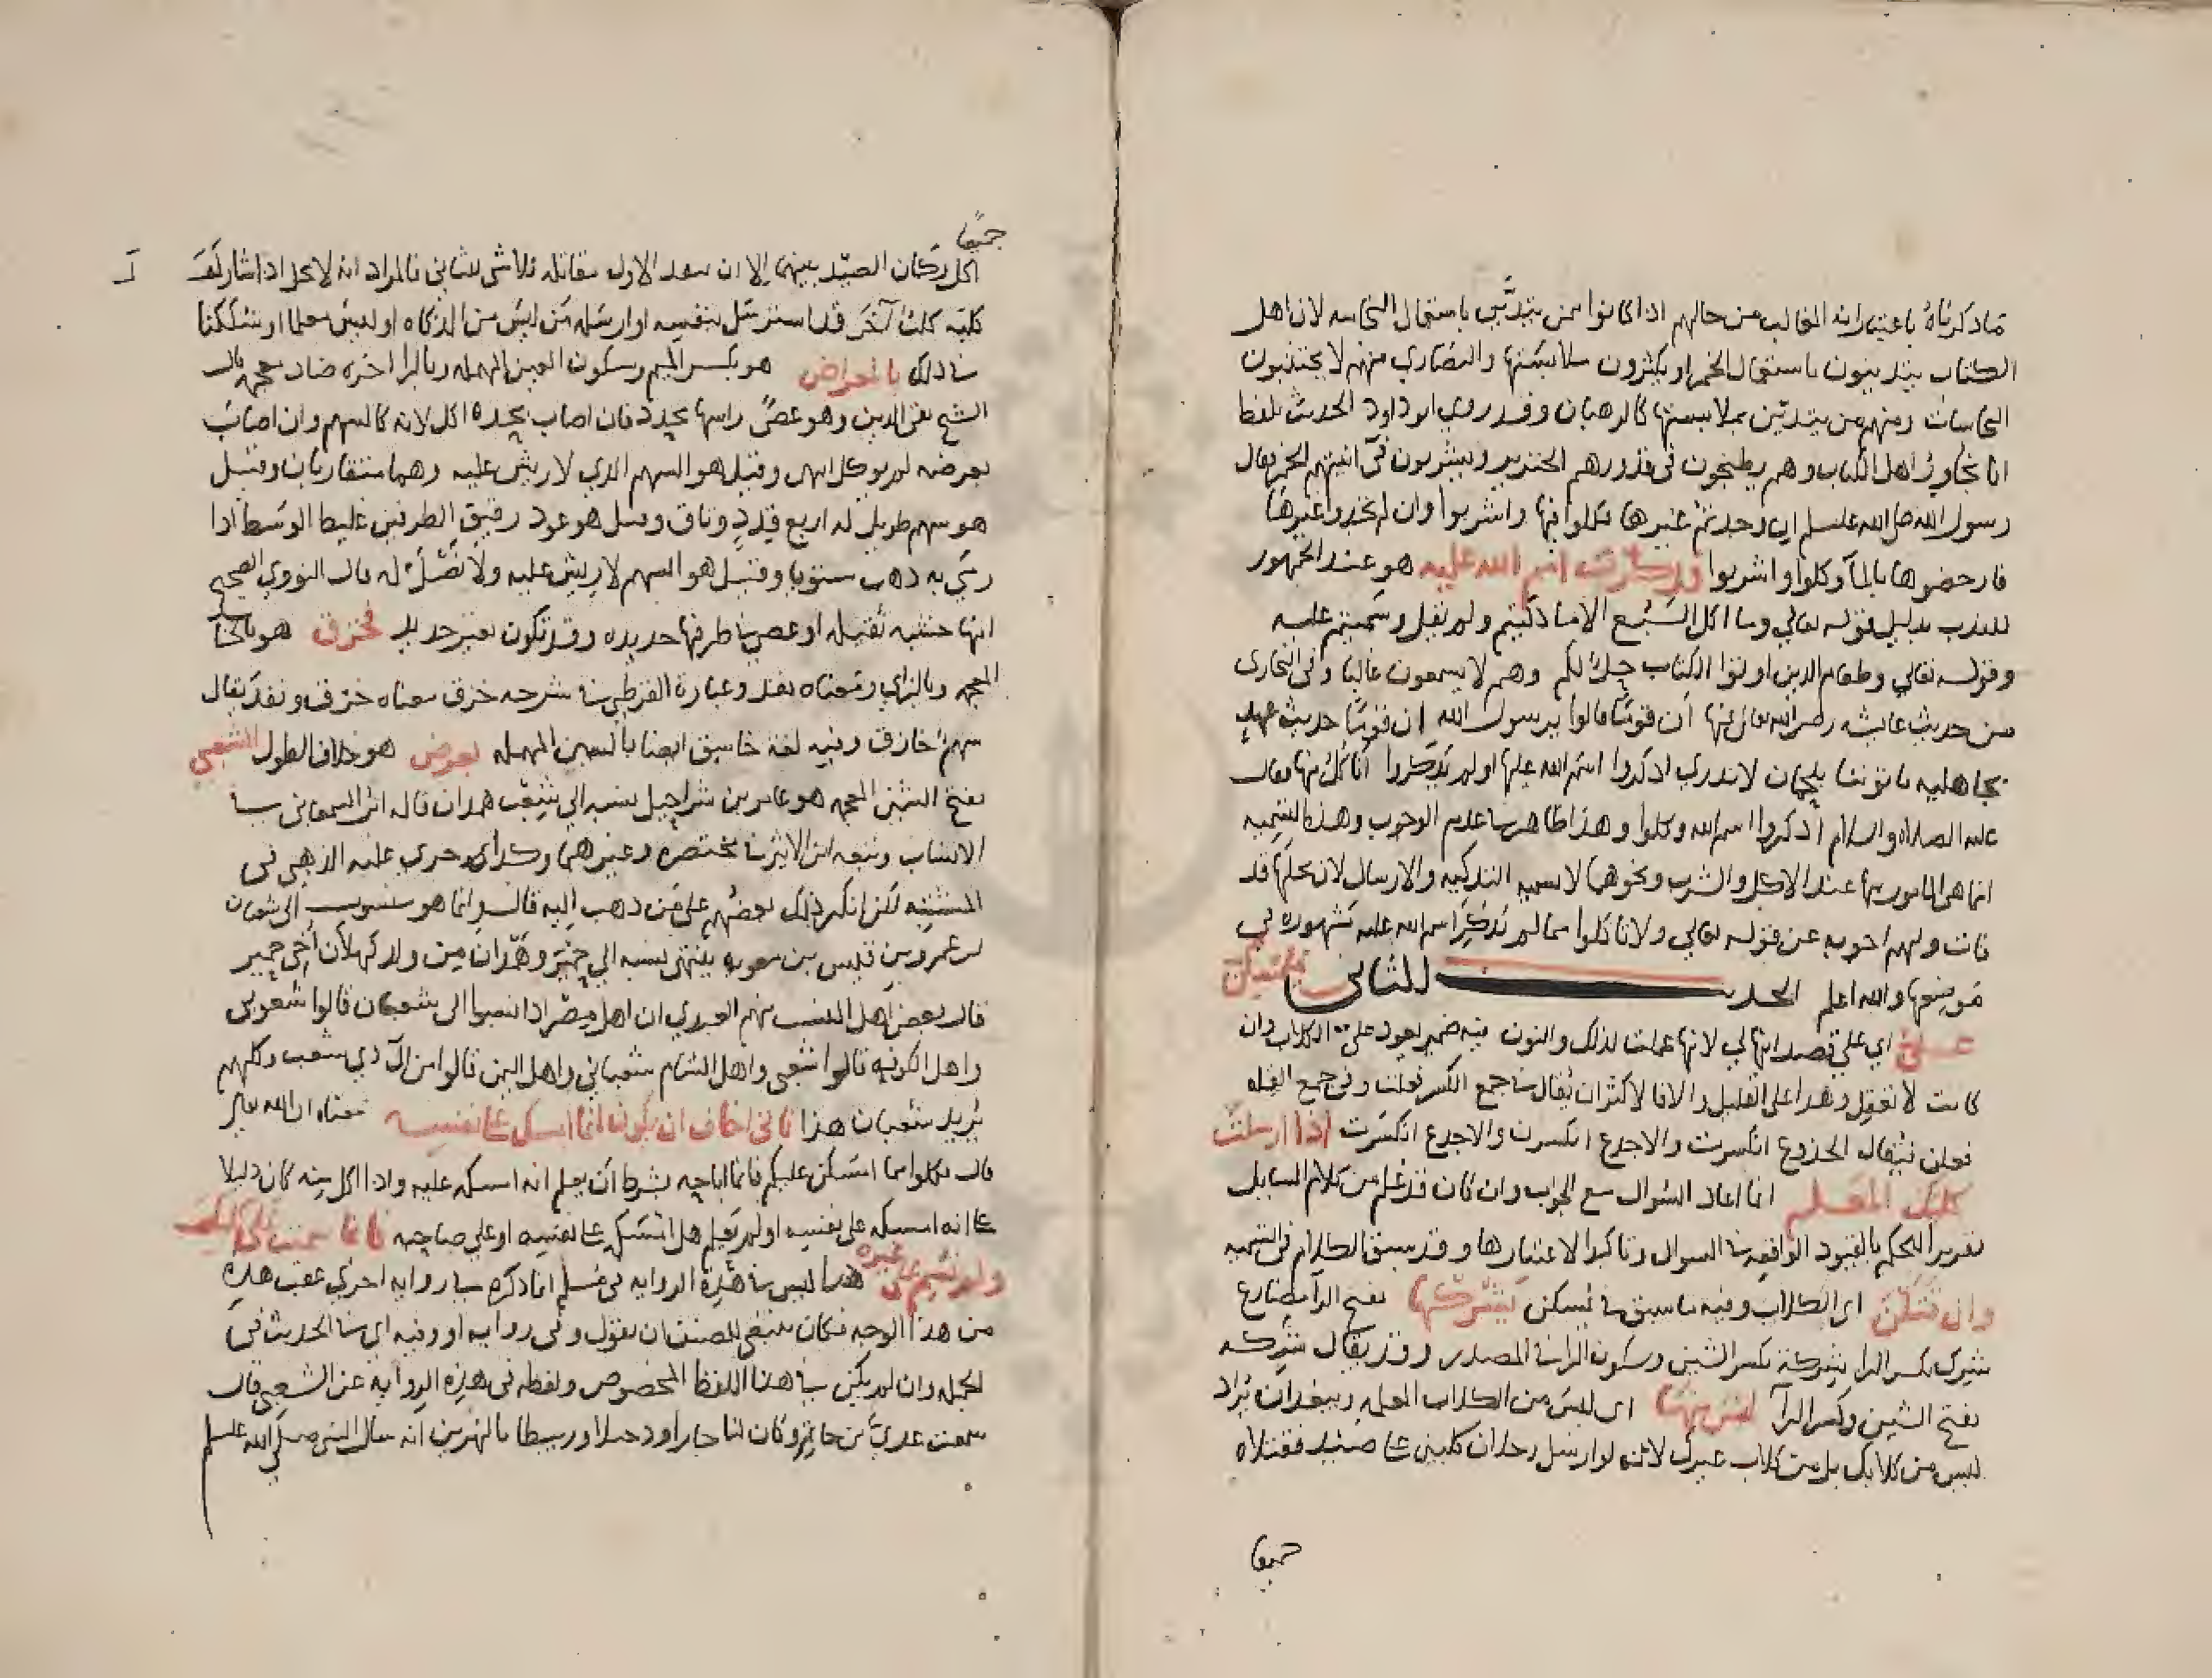 ماذكرناه باعتبار انه الغالب من حالهم اذا كانوا ممن يتديّن باستعمال النجاسه لان اهل
الكتاب يتدينون باستعمال الخمر او يكثرون ملابستها والنصارى منهم لا يجتنبون
النجاسات ومنهم من يتديّن بملابستها كالرهبان وقد روي ابو داود الحديث بلفظ
انا نجاور اهل الكتاب وهم يطبخون في قدورهم الخنزير ويشربون في آنيتهم الخمر فقال
رسول الله صلى الله عليه وسلم ان وجدتم غيرها فكلوا فيها واشربوا وان لم تجدوا غيرها
فارحضوها بالمآ وكلوا واشربوا وذكرت اسم الله عليه هو عند الجمهور
للندب بدليل قوله تعالي وما اكل السَّبُع الا ما ذكيتم ولم يقل وسميتم عليه
وقوله تعالي وطعام الذين اوتوا الكتاب حِلٌ لكم وهم لا يسمون غالبا وفي البخارى
من حديث عايشه رضى الله تعالى عنها ان قومًا قالوا يرسول الله ان قومًا حديث عهدٍ
بجاهليه ياتوننا بلحمان لا ندري اذكروا اسم الله عليها او لم يذكروا انأكل منها فقال
عليه الصلاه والسلام اذكروا اسم الله وكلوا وهذا ظاهر في عدم الوجوب وهذه التسميه
انما هى المامور بها عند الاكل والشرب ونحوهما لا تسميه التذكيه والارسال لان محلها قد
فات ولهم اجوبه عن قوله تعالي ولا تاكلوا مما لم يذكر اسم الله عليه مشهوره في
موضعها والله اعلم الحديث الثاني فيمسكن
علىّ اي على قصد انها لي لانها عملت لذلك والنون فيه ضمير يعود على الكلاب وان
كانت لا تعقل وهذا على القليل والا فالاكثر ان يقال في جمع الكثره فعلت وفي جمع القله
فعلن فيقال الجذوع انكسرت والاجذع انكسرن والاجذع انكسرت اذا ارسلت
كلبك المعلم انما اعاد السُوال مع الجواب وان كان قد عُلم من كلام السايل
تقريرا للحكم بالقيود الواقعه في السوال وتاكيدا لاعتبارها وقد سبق الكلام في التسميه
وان قتلن اى الكلاب وفيه ما سبق في يمسكن يَشْركها بفتح الرآ مضارع
شرِك بكسر الرا شِركة بكسر الشين وسكون الرا في المصدر وقد يقال شَرِكه
بفتح الشين وكسر الرآ ليس منها اى ليسَ من الكلاب المعلمه ويبعد ان يُراد
ليس من كلابك بل من كلاب غيرك لانه لو ارسل رجلان كلبين على صيد فقتلاه
جميعا
جميعا
اكل وكان الصيد بينهما الا ان سعد الاول بقاتله فلا شى للثاني فالمراد انه لا يحل اذا شاركه
كلبَه كلبٌ آخَر قد استرسَل بنفسه او ارسَله مَن ليسَ من اهل الذكاه او ليسَ معلما او شككنا
في ذلك بالمعراض هو بكسر الميم وسكون العين المهمله وبالرا اخره ضاد معجمه قال
الشيخ تقى الدين وهو عصًى راسها محدد فان اصاب بحده اكل لانه كالسهم وان اصابَ
بعرضه لم يوكل انتهى وقيل هو السهم الذي لا ريش عليه وهما متقاربان وقيل
هو سهم طويل له اربع قذذ رقاق وقيل هو عود رقيق الطرفين غليظ الوسَط اذا
رمي به ذهب مستويا وقيل هو السهم لا ريش عليه ولا نصل له قال النووي الصحيح
انها خشبه ثقيله او عصى في طرفها حديده وقد تكون بغير حديد فخزق هو بالخآ
المعجمه وبالزاي ومعناه نفذ وعبارة القرطبي في شرحه خزق معناه خرق ونفذ يقال
سهم خازق وفيه لغة خاسق ايضا بالسين المهمله بعرض هو خلاف الطول الشعبي
بفتح الشين المعجمه هو عامر بن شراحيل نسبه الي شعب همدان قاله ابن السمعاني في
الانساب وتبعه ابن الاثير في مختصره وغيرهما وكذلك جري عليه الذهبي في
المشتبه لكن انكر ذلك بعضهم على مَن ذهب اليه قال وانما هو منسوب الى شعبان
بن عمرو بن قيس بن معويه ينتهى نسبه الي حِمْير وهَمْدان مِن ولد كهلان أخى حمير
قال بعض اهل النسب منهم العبدري ان اهل مصر اذا نسبوا الى شعبان قالوا شعوبي
واهل الكوفه قالوا شعبى واهل الشام شعباني واهل اليمن قالوا من آل ذي شعب وكلهم
يُريد شعبان هذا فاني اخاف ان يكون انما امسك على نفسه معناه ان الله تعالى
قال فكلوا مما امسَكن عليكم فانما اباحه بشرط ان يعلم انه امسكه عليه واذا اكل منه كان دليلا
على انه امسكه على نفسه او لم يعلم هل امسَكه على نفسه او علي صاحبه فانما سميت على كلبك
ولم تسم على غيره هذا ليس في هَذِهِ الروايه في مُسلم انما ذكره في روايه اخري عقب هذه
من هذا الوجه فكان ينبغى للمصنف ان يقول وفي روايه او وفيه اى في الحديث في
الجمله وان لم يكن في هذا اللفظ المخصوص ولفظه في هذه الروايه عن الشعبي قال
سمعت عدي بن حاتم وكان لنا جارا ودخيلا وربيطا بالنهرين انه سال النبى صلى الله عليه وسلم